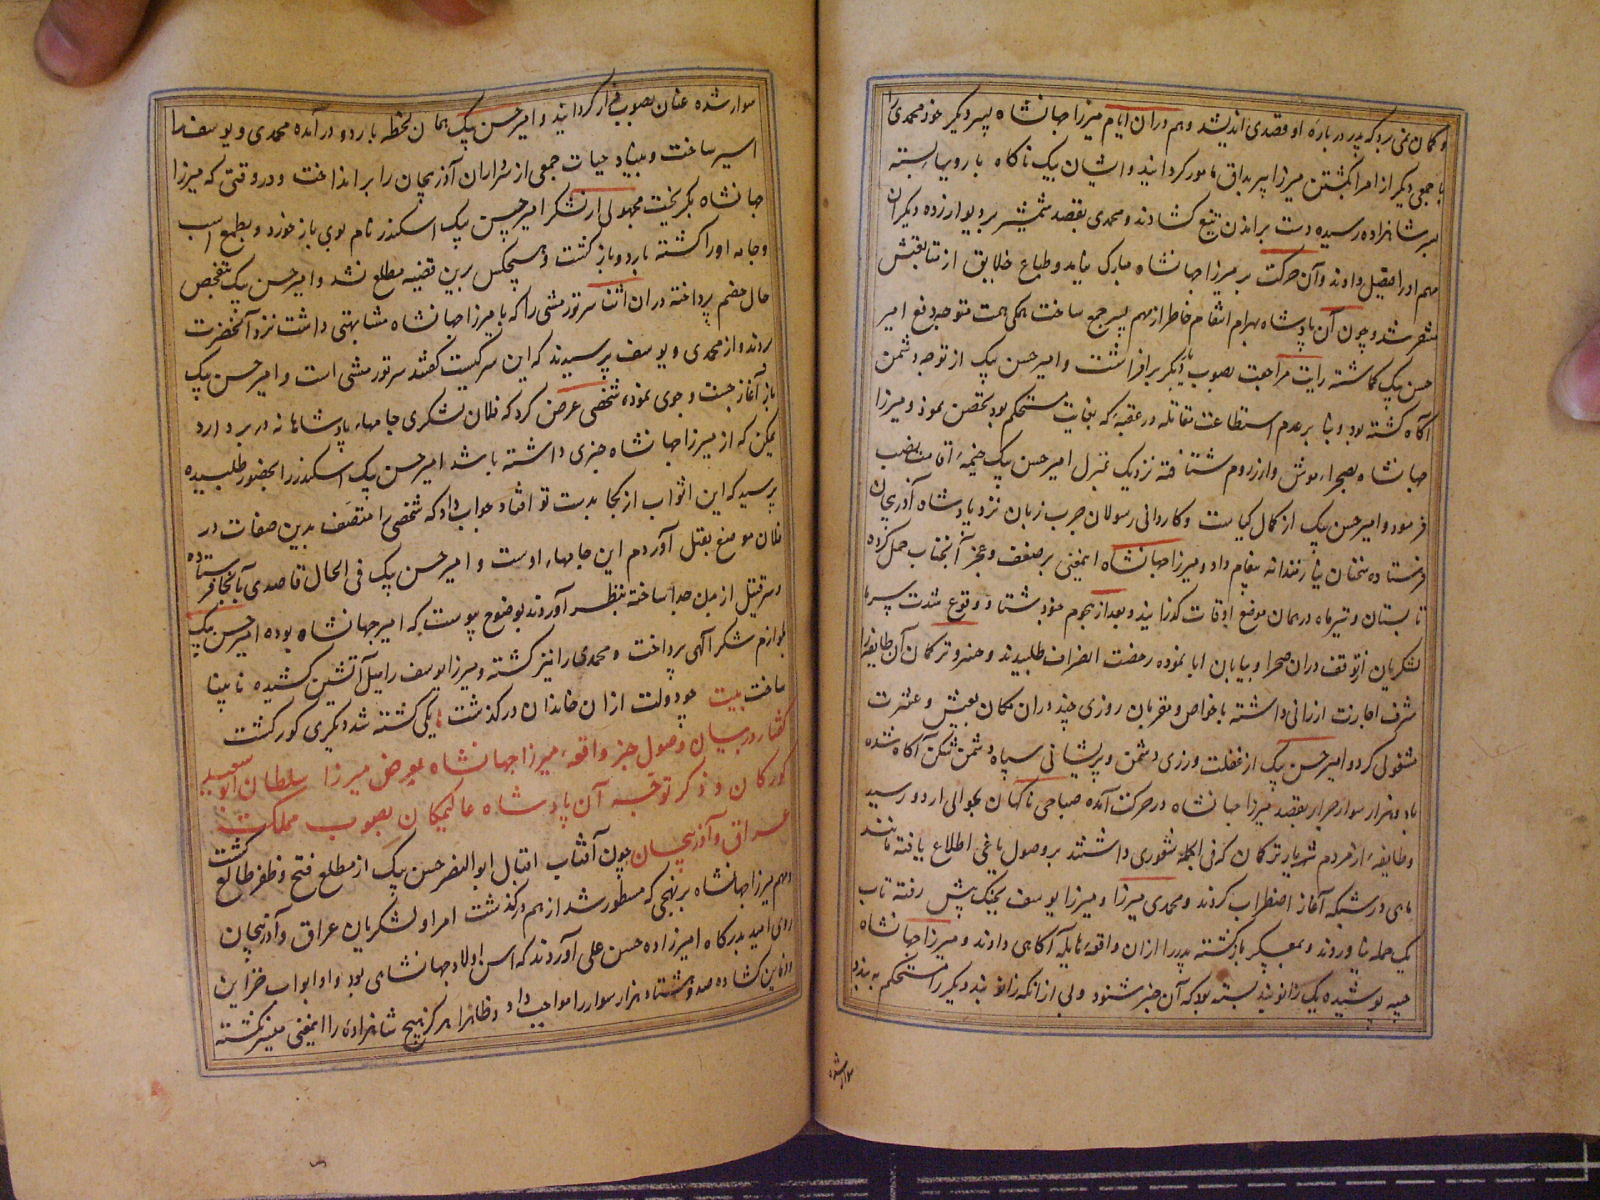 و کمان نمی برد که پدر در باره او قصدی اندیشد و هم دران ایام میرزا جهانشاه پسر دیگر خود محمدی را
با جمعی دیگر از امرا بکشتن میرزا پیر بداق مامور کردانید و ایشان بیک ناکاه
بسر شاهزاده رسیده دست براندن تیغ کشادند و محمدی بقصد شمشیر بر دیوار زده دیگران
مهم او را فیصل دادند و آن حرکت بر میرزا جهانشاه مبارک نیامد و طباع خلایق از متابعتش
متنفر شد و چون آن پادشاه بهرام انتقام خاطر از مهم پسر جمع ساخت همکی همت متوجه دفع امیر
حسن بیک کماشته رایت مراجعت بصوب دیگر برافراشت و امیر حسن بیک از توجه دشمن
آکاه کشته بود و بنا بر عدم استطاعت مقاتله در عقبه که بغایت مستحکم بود تحصن نمود و میرزا
جهانشاه بصحراء موش و ارزروم شتافته نزدیک بمنزل امیر حسن بیک خیمه اقامت نصب
فرمود و امیر حسن بیک از کمال کیاست و کاردانی رسولان چرب زبان نزد پادشاه آذربیجان
فرستاده سخنان نیازمندانه پیغام داد و میرزا جهانشاه اینمعنی بر ضعف و عجز آنجناب حمل کرده
تابستان و تیرماه در همان موضع اوقات کذرانید و بعد از هجوم جنود شتا و وقوع شدت سرما
لشکریان از توقف دران صحرا و بیابان ابا نموده رخصت انصراف طلبیدند و خسرو ترکمان آن طایفه را
شرف اجازت ارزانی داشته با خواص و مقربان روزی چند دران مکان بعیش و عشرت
مشغولی کرد و امیر حسن بیک از غفلت ورزی دشمن و پریشانی سپاه دشمن شکن آکاه شده
با دو هزار سوار جرار بقصد میرزا جهانشاه در حرکت آمده صباحی ناکهان بحوالی اردو رسید
و طایفه از مردم شهریار ترکمان که فی الجمله شعوری داشتند بر وصول یاغی اطلاع یافته مانند
ماهی در شبکه آغاز اضطراب کردند و محمدی میرزا و میرزا یوسف بجنک پیش رفته تاب
یک حمله نیاوردند و بمعسکر بازکشته پدر را ازان واقعه هایله آکاهی دادند و میرزا جهانشاه
جیبه پوشیده یک زانوبند بسته بود که آن خبر شنود و بی ازانکه زانوبند دیگر را مستحکم به بندد
سوار شده
سوار شده عنان بصوب فرار کردانید و امیر حسن بیک همان لحظه باردو درآمده محمدی و یوسف را
اسیر ساخت و بنیاد حیات جمعی از سرداران آذربیجان را برانداخت و در وقتی که میرزا
جهانشاه بکریخت مجهولی از لشکر امیر حسن بیک اسکندر نام بوی باز خورد و بطمع اسب
و جامه او را کشته باردو باز کشت و هیچکس برین قضیه مطلع نشد و امیر حسن بیک بتفحص
حال خصم پرداخته دران اثنا سر تورمشی را که با میرزا جهانشاه مشابهتی داشت نزد آنحضرت
بردند و از محمدی و یوسف پرسیدند که این سر کیست کفتند سر تورمشی است و امیر حسن بیک
باز آغاز جست و جوی نموده شخصی عرض کرد که فلان لشکری جامهاء پادشاهانه در بر دارد
یمکن که از میرزا جهانشاه خبری داشته باشد امیر حسن بیک اسکندر را بحضور طلبیده
پرسید که این اثواب از کجا بدست تو افتاد جواب داد که شخصی را متصف بدین صفات در
فلان موضع بقتل آوردم این جامهاء اوست و امیر حسن بیک فی الحال قاصدی بآنجا فرستاده
و سر قتیل از بدن جدا ساخته بنظر آوردند بوضوح پیوست که امیر جهانشاه بوده امیر حسن بیک
بلوازم شکر آلهی پرداخت و محمدی را نیز کشته و میرزا یوسف را میل آتشین کشیده نابینا
ساخت بیت چو دولت ازان خاندان در کذشت یکی کشته شد دیگری کور کشت
کفتار در بیان وصول خبر واقعه میرزا جهانشاه بعرض میرزا سلطان ابوسعید
کورکان و ذکر توجه آن پادشاه عالیمکان بصوب مملکت
عراق و آذربیجان چون آفتاب اقبال ابوالنصر حسن بیک از مطلع فتح و ظفر طالع کشت
و مهم میرزا جهانشاه بر نهجی که مسطور شد از هم درکذشت امرا و لشکریان عراق و آذربیجان
روی امید بدرکاه امیرزاده حسن علی آوردند که اسن اولاد جهانشاهی بود و او ابواب خزاین
و دفاین کشاده صد و هشتاد هزار سوار را مواجب داد و ظاهرا هرکز هیچ شاهزاده را اینمعنی میسر نکشته